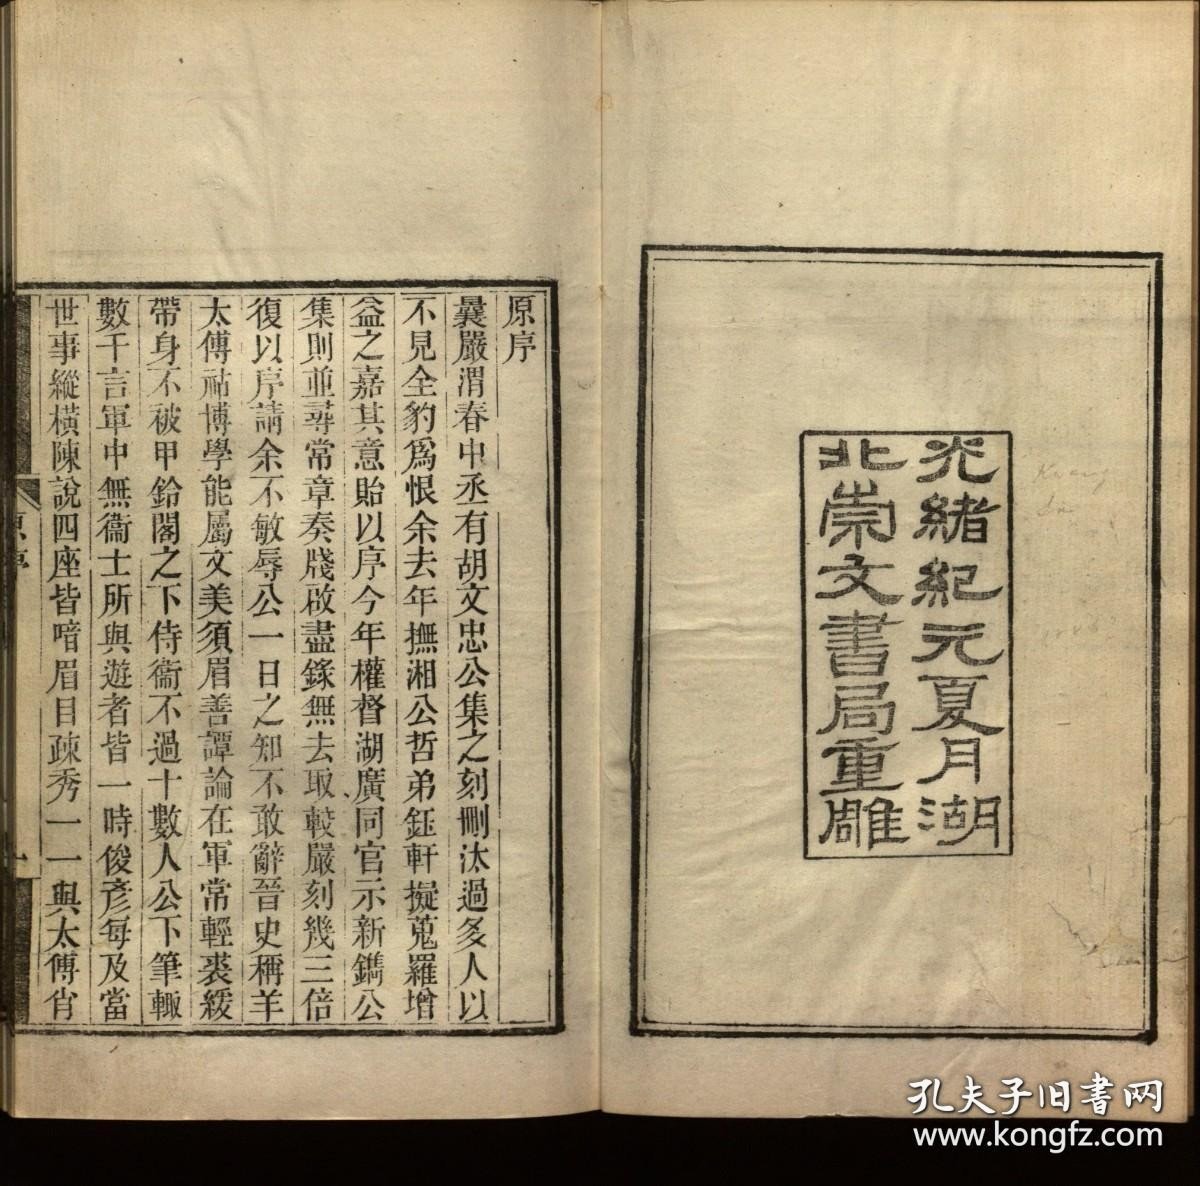 光緒紀元夏月湖
北崇文書局重雕
原序
曩嚴渭春中丞有胡文忠公集之刻刪汰過多人以
不見全豹爲恨余去年撫湘公哲弟鈺軒擬蒐羅增
益之嘉其意貽以序今年權督湖廣同官示新鐫公
集則並尋常章奏牋啟盡錄無去取較嚴刻幾三倍
復以序請余不敏辱公一日之知不敢辭晉史稱羊
太傅祜博學能屬文美須眉善譚論在軍常輕裘緩
帶身不被甲鈴閣之下侍衞不過十數人公下筆輒
數千言軍中無衞士所與遊者皆一時俊彥每及當
世事縱橫陳說四座皆喑眉目疎秀一一與太傅肖
原序
一
孔夫子旧书网
www.kongfz.com